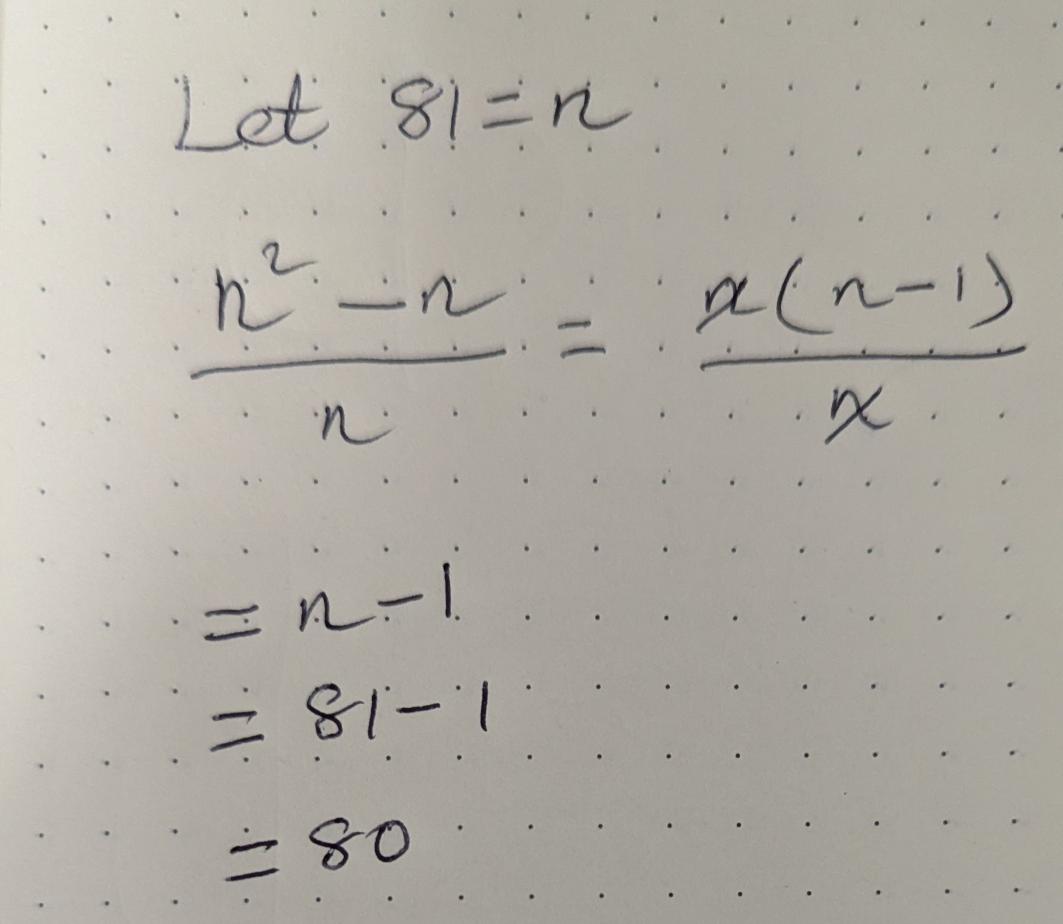 Let 81 = n
n² - n / n = n(n-1) / n
= n - 1
= 81 - 1
= 80